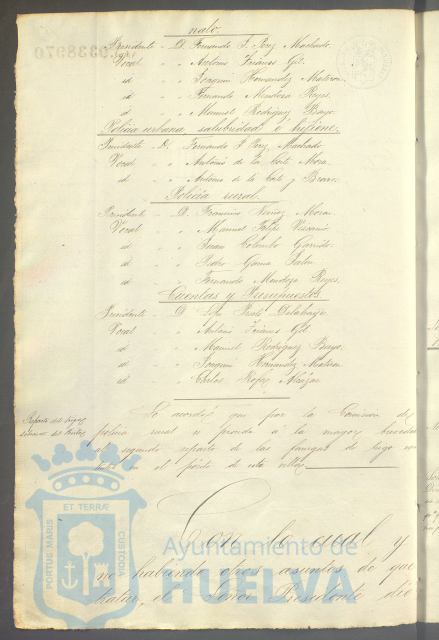 nato.
Presidente - D. Fernando J. Perez Machado.
Vocal " " Antonio Gil.
id " " Joaquin Hernandez Mateos.
id " " Fernando Mendoza Reyes.
id " " Manuel Rodriguez Bayo.
Policia urbana, salubridad e higiene.
Presidente - D. Fernando J. Perez Machado.
Vocal " " Antonio de la Corte Mora.
id " " Antonio de la Corte y Bravo.
Policia rural.
Presidente - D. Francisco Nuñez Mora.
Vocal " " Manuel Felipe
id " " Juan Colombo Garrido.
id " " Pedro Gama
id " " Fernando Mendoza Reyes.
Cuentas y Presupuestos
Presidente - D.
Vocal " " Antonio Gil.
id " " Manuel Rodriguez Bayo.
id " " Joaquin Hernandez Mateos
id " " Carlos
Reparto del trigo
Se acordó que por la Comision de
policia rural se proceda á la mayor brevedad
al segundo reparto de las fanegas de trigo
en el pósito de esta villa.
Con lo cual y
no habiendo otros asuntos de que
tratar, el Señor Presidente dió
PORTUS MARIS
ET TERRÆ
CUSTODIA
Ayuntamiento de
HUELVA